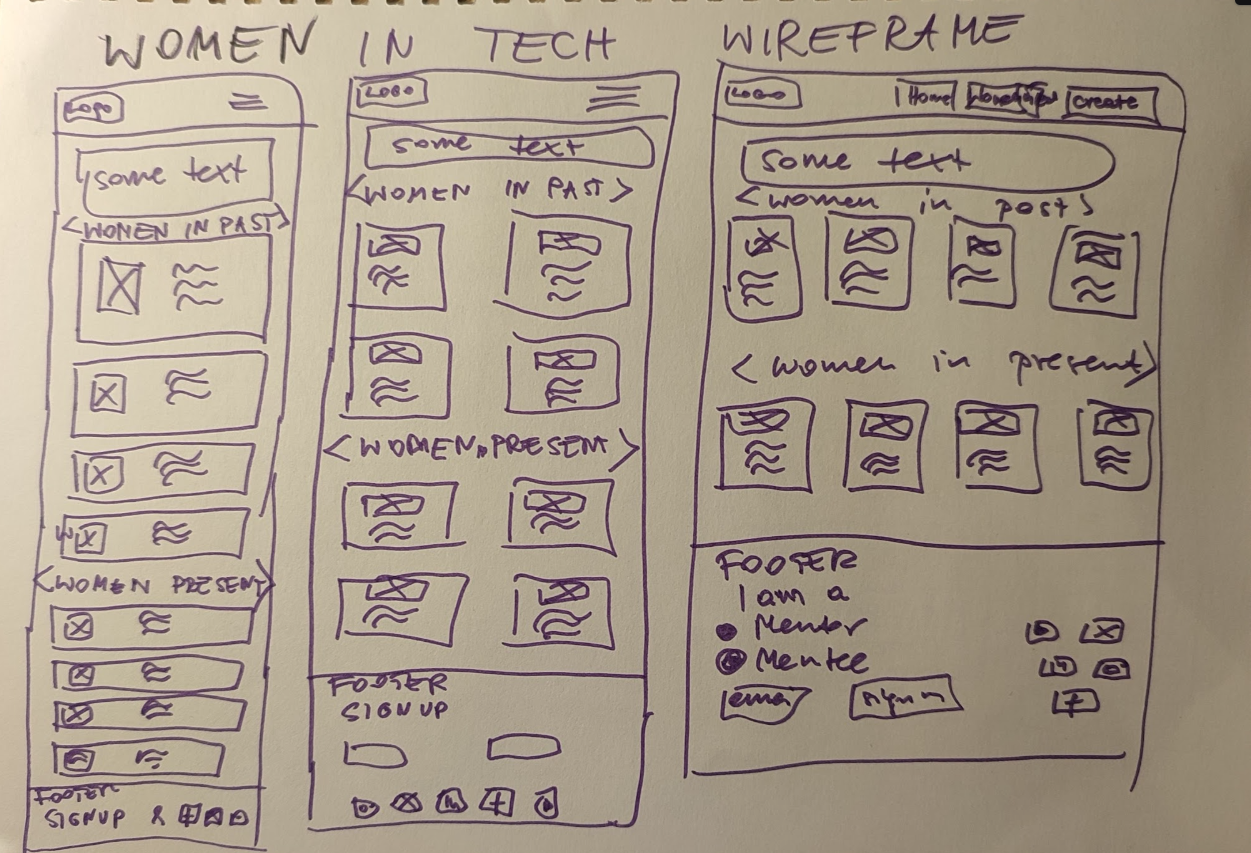 WOMEN IN TECH WIREFRAME
LOGO
some text
<WOMEN IN PAST>
<WOMEN PRESENT>
FOOTER
SIGNUP &
LOGO
some text
<WOMEN IN PAST>
<WOMEN PRESENT>
FOOTER
SIGN UP
LOGO Home Create
some text
<women in past>
<women in present>
FOOTER
I am a
Mentor
Mentee
sign in